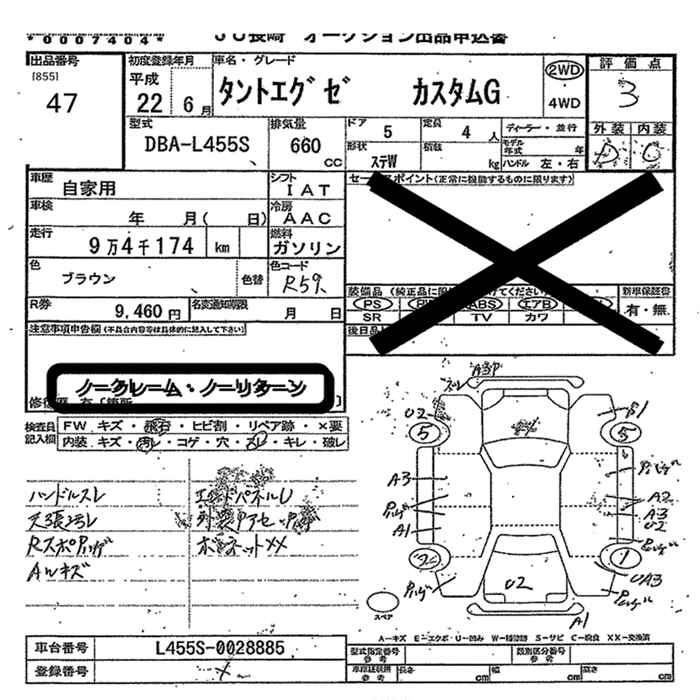 *0007404*
JU長崎 オークション出品申込書
出品番号 初度登録年月 車名・グレード 評価点
[855]
47
平成
22 6月
タントエグゼ カスタムG
2WD
・
4WD
3
外装 内装
D C
型式 排気量 ドア 5 定員 4人 ディーラー・並行
DBA-L455S 660 CC
形状 ステW 積載 kg モデル年式 年
ハンドル 左・右
車歴 自家用 シフト IAT
車検 年 月( 日) 冷房 AAC
走行 9万4千174 km 燃料 ガソリン
色 ブラウン 色替 色コード R59
R券 9,460円 名変通知期限 月 日
セールスポイント(正常に機能するものに限ります)
装備品 新車保証書
PS PW ABS エアB
SR TV カワ 有・無
後日品
注意事項申告欄(不具合内容等は具体的に記入して下さい)
ノークレーム・ノーリターン
検査員記入欄
FW キズ・飛石・ヒビ割・リペア跡・×要
内装 キズ・汚レ・コゲ・穴・スレ・キレ・破レ
ハンドルスレ エンドパネルU
天張ヨゴレ
ボンネットXX
AWキズ
A3P
U2 5 5 A1
A3 A2
A3
A1 U2
2 1
U2 UA3
A1
スペア
A-キズ E-エクボ・U-凹み W-補修跡 S-サビ C-腐食 XX-交換済
車台番号 L455S-0028885
登録番号
型式指定番号 参考 類別区分番号 参考
車検証記載 参考 長さ cm 幅 cm 高さ cm